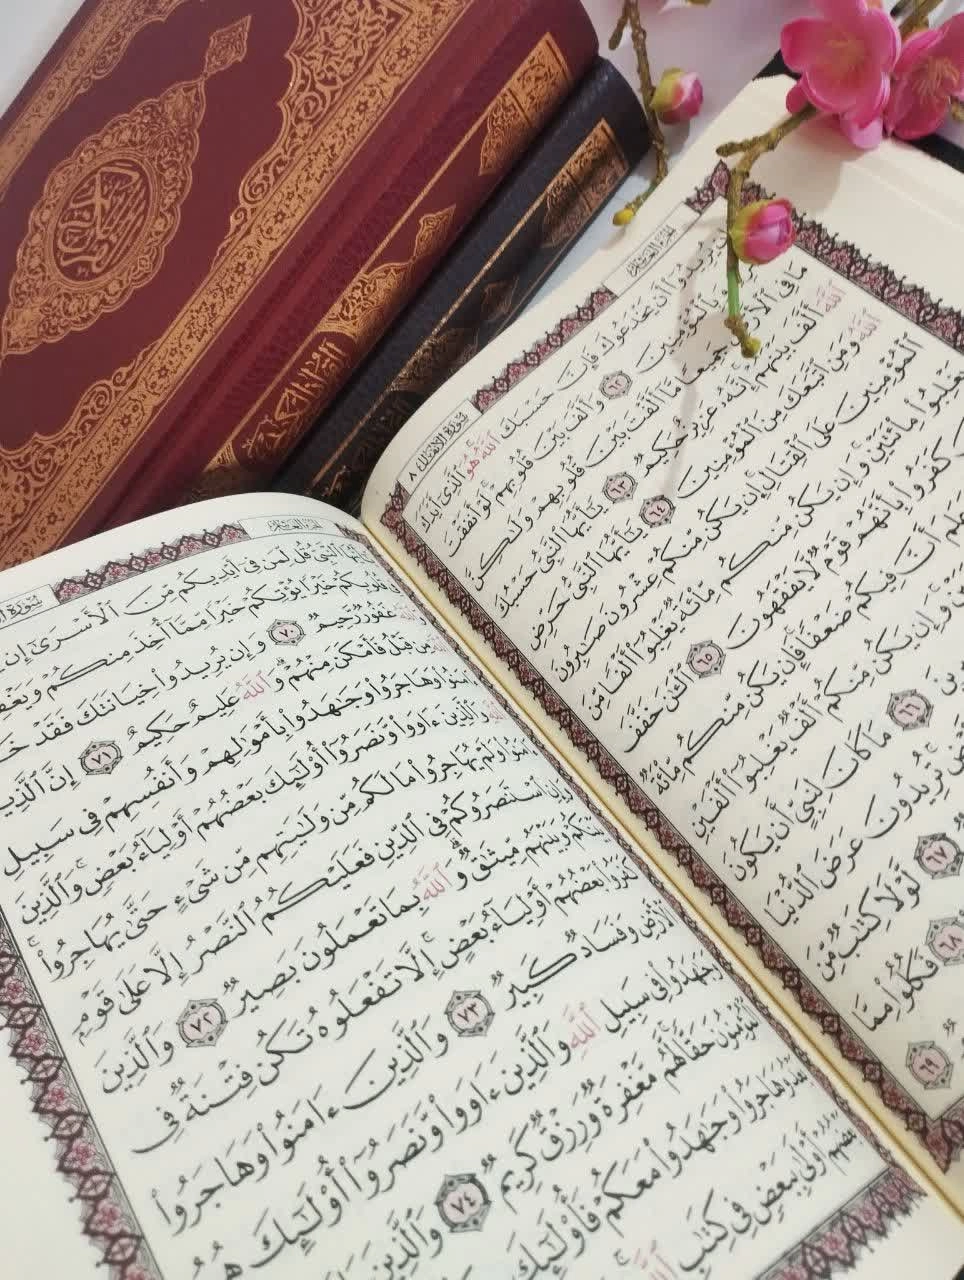 القرآن الكريم
الجزء العاشر
سورة الأنفال ٨
وَإِن يُرِيدُوٓا۟ أَن يَخْدَعُوكَ فَإِنَّ حَسْبَكَ ٱللَّهُ هُوَ ٱلَّذِىٓ أَيَّدَكَ
وَبِٱلْمُؤْمِنِينَ ٦٢ وَأَلَّفَ بَيْنَ قُلُوبِهِمْ لَوْ أَنفَقْتَ
مَا فِى ٱلْأَرْضِ جَمِيعًا مَّآ أَلَّفْتَ بَيْنَ قُلُوبِهِمْ وَلَـٰكِنَّ
ٱللَّهَ أَلَّفَ بَيْنَهُمْ إِنَّهُۥ عَزِيزٌ حَكِيمٌ ٦٣ يَـٰٓأَيُّهَا ٱلنَّبِىُّ حَسْبُكَ
ٱللَّهُ وَمَنِ ٱتَّبَعَكَ مِنَ ٱلْمُؤْمِنِينَ ٦٤ يَـٰٓأَيُّهَا ٱلنَّبِىُّ حَرِّضِ
ٱلْمُؤْمِنِينَ عَلَى ٱلْقِتَالِ إِن يَكُن مِّنكُمْ عِشْرُونَ صَـٰبِرُونَ
يَغْلِبُوا۟ مِا۟ئَتَيْنِ وَإِن يَكُن مِّنكُم مِّا۟ئَةٌ يَغْلِبُوٓا۟ أَلْفًا مِّنَ
كَفَرُوا۟ بِأَنَّهُمْ قَوْمٌ لَّا يَفْقَهُونَ ٦٥ ٱلْـَٔـٰنَ خَفَّفَ
وَعَلِمَ أَنَّ فِيكُمْ ضَعْفًا فَإِن يَكُن مِّنكُم مِّا۟ئَةٌ
وَإِن يَكُن مِّنكُمْ أَلْفٌ يَغْلِبُوٓا۟ أَلْفَيْنِ
٦٦ مَا كَانَ لِنَبِىٍّ أَن يَكُونَ
تُرِيدُونَ عَرَضَ ٱلدُّنْيَا
٦٧ لَّوْلَا كِتَـٰبٌ مِّنَ
٦٨ فَكُلُوا۟ مِمَّا
٦٩
الجزء العاشر
سورة
يَـٰٓأَيُّهَا ٱلنَّبِىُّ قُل لِّمَن فِىٓ أَيْدِيكُم مِّنَ ٱلْأَسْرَىٰٓ إِن
قُلُوبِكُمْ خَيْرًا يُؤْتِكُمْ خَيْرًا مِّمَّآ أُخِذَ مِنكُمْ وَيَغْفِرْ
غَفُورٌ رَّحِيمٌ ٧٠ وَإِن يُرِيدُوا۟ خِيَانَتَكَ فَقَدْ
مِن قَبْلُ فَأَمْكَنَ مِنْهُمْ وَٱللَّهُ عَلِيمٌ حَكِيمٌ ٧١ إِنَّ ٱلَّذِينَ
وَهَاجَرُوا۟ وَجَـٰهَدُوا۟ بِأَمْوَٰلِهِمْ وَأَنفُسِهِمْ فِى سَبِيلِ
وَٱلَّذِينَ ءَاوَوا۟ وَّنَصَرُوٓا۟ أُو۟لَـٰٓئِكَ بَعْضُهُمْ أَوْلِيَآءُ بَعْضٍ وَٱلَّذِينَ
وَلَمْ يُهَاجِرُوا۟ مَا لَكُم مِّن وَلَـٰيَتِهِم مِّن شَىْءٍ حَتَّىٰ يُهَاجِرُوا۟
وَإِنِ ٱسْتَنصَرُوكُمْ فِى ٱلدِّينِ فَعَلَيْكُمُ ٱلنَّصْرُ إِلَّا عَلَىٰ قَوْمٍ
بَيْنَكُمْ وَبَيْنَهُم مِّيثَـٰقٌ وَٱللَّهُ بِمَا تَعْمَلُونَ بَصِيرٌ ٧٢ وَٱلَّذِينَ
كَفَرُوا۟ بَعْضُهُمْ أَوْلِيَآءُ بَعْضٍ إِلَّا تَفْعَلُوهُ تَكُن فِتْنَةٌ فِى
ٱلْأَرْضِ وَفَسَادٌ كَبِيرٌ ٧٣ وَٱلَّذِينَ ءَامَنُوا۟ وَهَاجَرُوا۟
وَجَـٰهَدُوا۟ فِى سَبِيلِ ٱللَّهِ وَٱلَّذِينَ ءَاوَوا۟ وَّنَصَرُوٓا۟ أُو۟لَـٰٓئِكَ هُمُ
ٱلْمُؤْمِنُونَ حَقًّا لَّهُم مَّغْفِرَةٌ وَرِزْقٌ كَرِيمٌ ٧٤ وَٱلَّذِينَ
وَهَاجَرُوا۟ وَجَـٰهَدُوا۟ مَعَكُمْ فَأُو۟لَـٰٓئِكَ
بَعْضُهُمْ أَوْلَىٰ بِبَعْضٍ فِى كِتَـٰبِ ٱللَّهِ